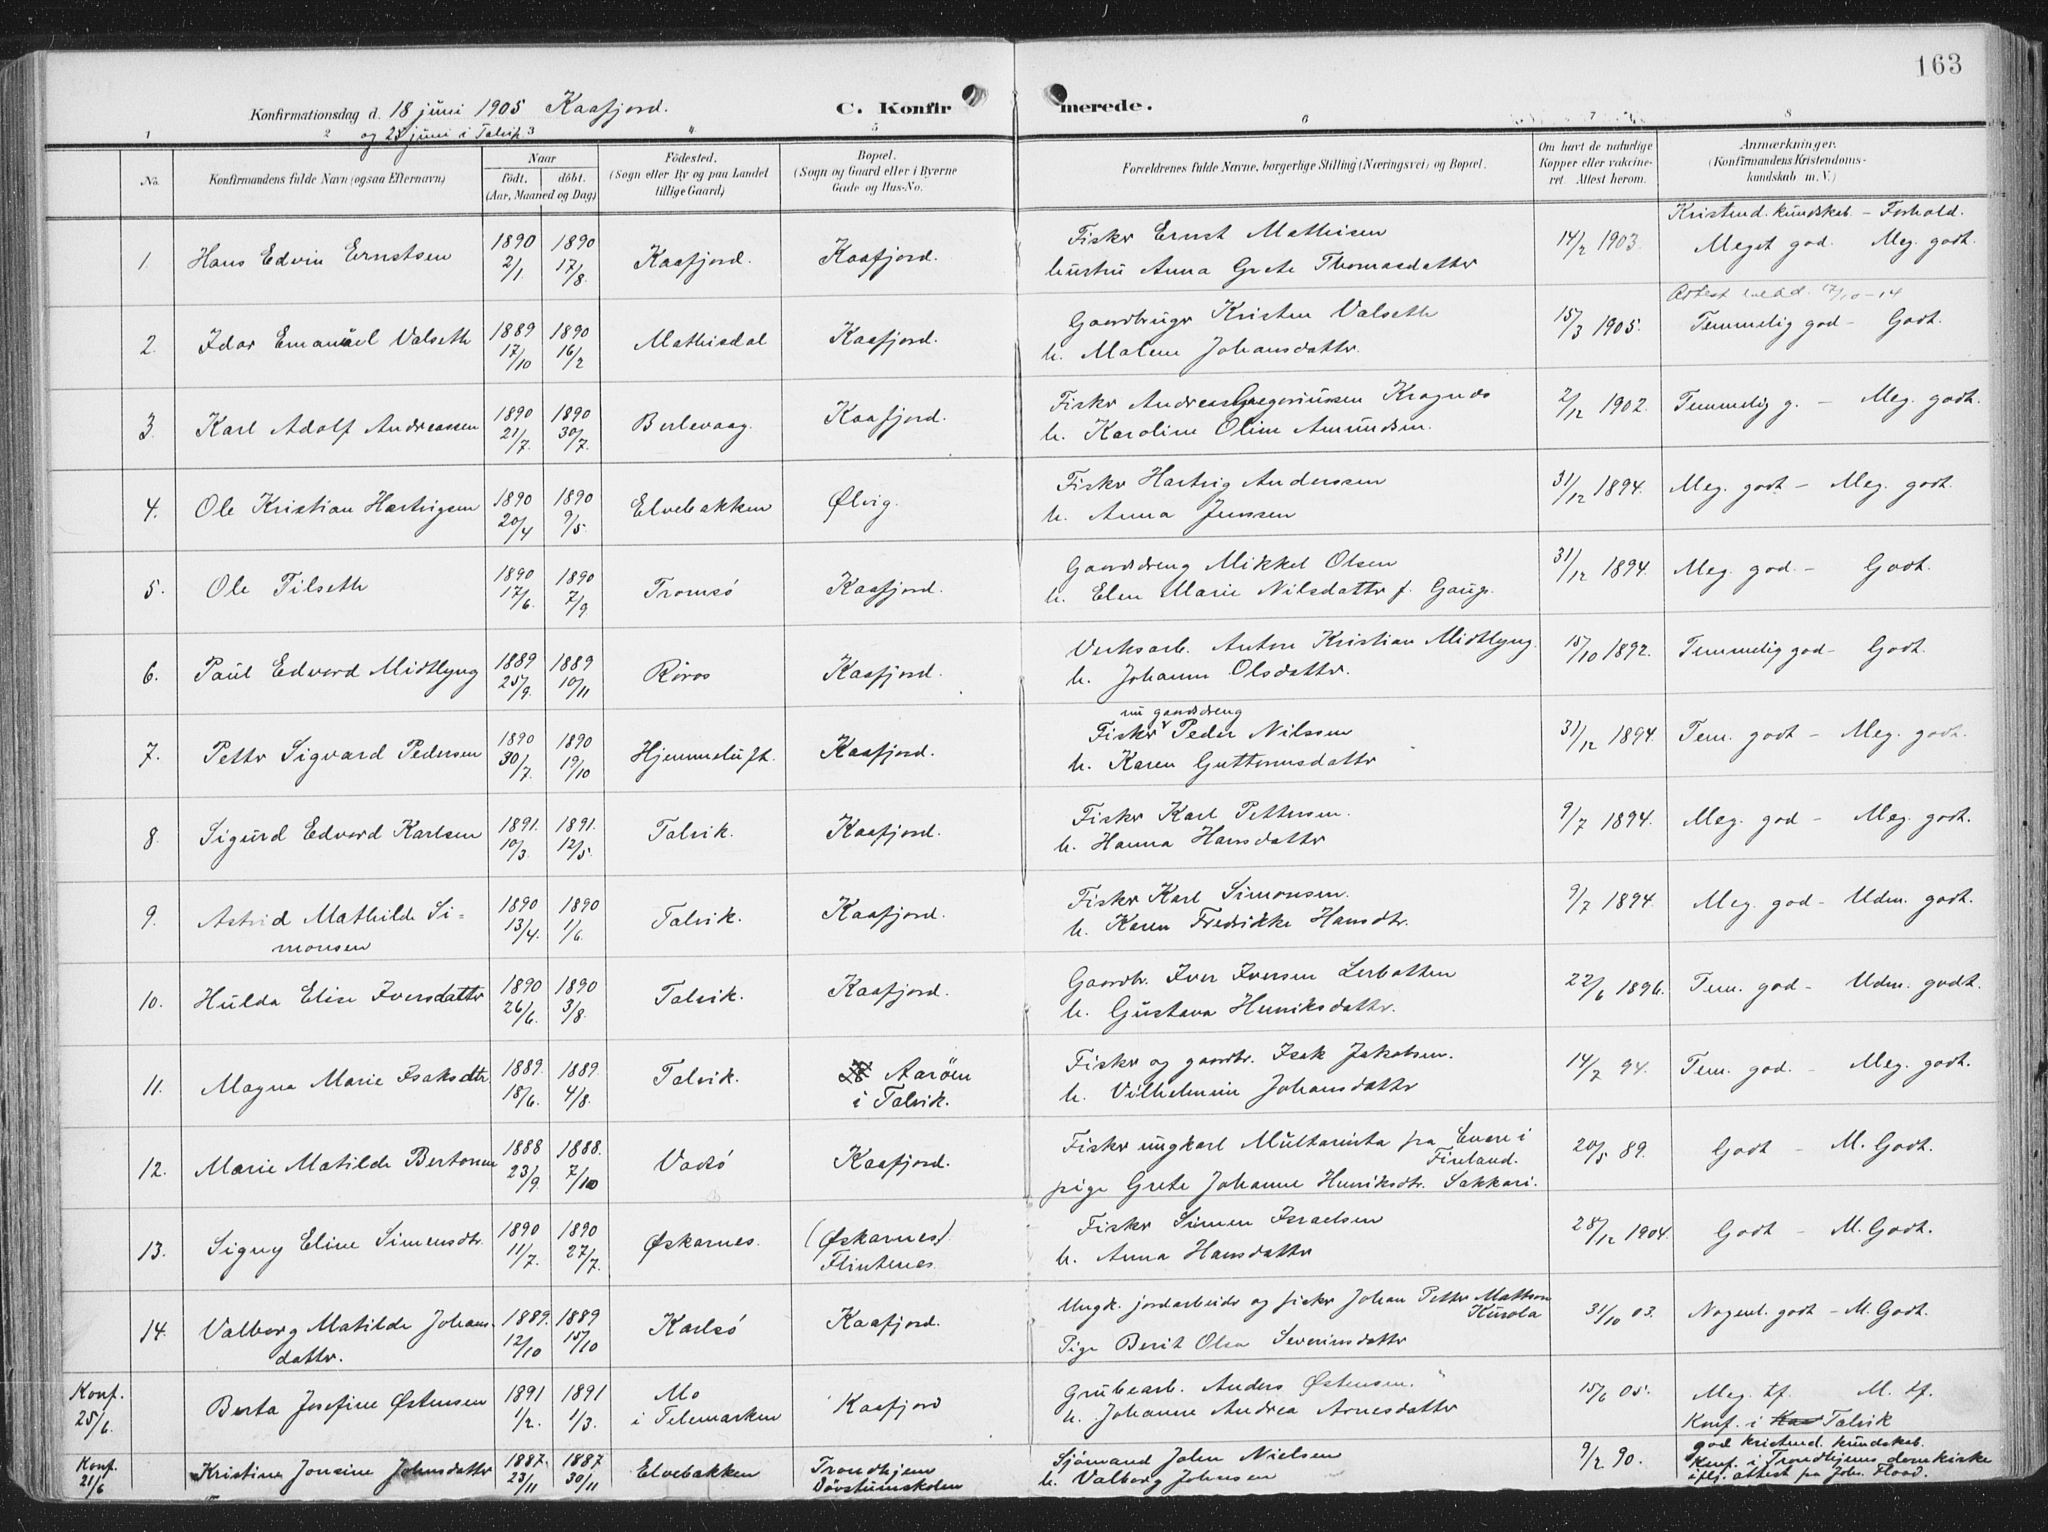 163
Konfirmationsdag d. 18 juni 1905 Kaafjord. C. Konfirmerede.
og 25 juni i Talvik
1 2 3 4 5 6 7 8
No. Konfirmandens fulde Navn (ogsaa Efternavn) Naar født, døbt. (Aar, Maaned og Dag) Fødested. (Sogn eller By og paa Landet tillige Gaard) Bopæl. (Sogn og Gaard eller i Byerne Gade og Hus-No. Forældrenes fulde Navne, borgerlige Stilling (Næringsvei) og Bopæl. Om havt de naturlige Kopper eller vakcineret. Attest herom. Anmærkninger. (Konfirmandens Kristendomskundskab m. V.)
Kristend. kundskab. – Forhold.
1. Hans Edvin Ernstsen 1890 2/1 1890 17/8. Kaafjord. Kaafjord. Fisker Ernst Mathisen 14/2 1903. Meget god. Meg. godt.
hustru Anna Grete Thomasdatter
Attest 17/10-14
2. Idar Emanuel Valseth 1889 17/10 1890 16/2 Mathisdal Kaafjord. Gaardbruger Kristen Valseth 15/3 1905. Temmelig god – Godt.
h. Malene Johansdatter.
3. Karl Adolf Andreassen 1890 21/7. 1890 30/7. Berlevaag. Kaafjord. Fisker Andreas Gregoriussen Kragnes 2/12 1902. Temmelig g. – Meg. godt.
h. Karoline Oline Amundsen.
4. Ole Kristian Hartvigsen 1890 20/4 1890 9/5. Elvebakken Ølvig. Fisker Hartvig Anderssen 31/12 1894. Meg. godt – Meg. godt.
h. Anna Jenssen
5. Ole Tilseth 1890 17/6. 1890 7/9 Tromsø Kaafjord. Gaardsdreng Mikkel Olsen 31/12 1894. Meg. god. – Godt.
h. Elen Marie Nilsdatter f. Gaups.
6. Paul Edvard Midtlyng 1889 25/9. 1889 10/11 Røros Kaafjord. Verksarb. Anton Kristian Midtlyng. 15/10 1892. Temmelig god – Godt.
h. Johanne Olsdatter.
nu gaardsdreng
7. Petter Sigvard Pedersen 1890 30/7. 1890 19/10 Hjemmeluft. Kaafjord. Fisker Peder Nilssen 31/12 1894. Tem. godt – Meg. godt.
h. Karen Guttormsdatter
8. Sigurd Edvard Karlsen 1891. 10/3. 1891. 12/5. Talvik. Kaafjord. Fisker Karl Pettersen. 9/7 1894. Meg. god – Meg. godt.
h. Hanna Hansdatter
9. Astrid Mathilde Simonsen 1890 13/4. 1890 1/6. Talvik. Kaafjord. Fisker Karl Simonsen. 9/7 1894. Meg. god – Udm. godt.
h. Karen Fredrikke Hansdtr.
10. Hulda Elise Iversdatter 1890 26/6. 1890 3/8. Talvik. Kaafjord. Gaardbr. Iver Iversen Lerbotten 22/6 1896. Tem. god – Udm. godt.
h. Gustava Henriksdatter.
11. Magna Marie Isaksdtr. 1889. 18/6. 1889. 4/8. Talvik. Aarøen Fisker og gaardbr. Isak Jakobsen. 14/7 94. Tem. god. – Meg. godt.
i Talvik. h. Vilhelmine Johansdatter
12. Marie Matilde Bertonen 1888 23/9. 1888. 7/10 Vadsø Kaafjord. Fisker ungkarl Multaniita fra Enare i Finland. 20/5 89. Godt – M. Godt.
pige Grete Johanne Henriksdtr. Sakkari.
13. Signy Eline Simensdtr. 1890 11/7. 1890 27/7. Øskarnes. (Øskarnes) Fisker Simen Israelsen 28/12 1904. Godt – M. Godt.
Flintenes. h. Anna Hansdatter
14. Valborg Matilde Johansdatter. 1889. 12/10 1889 15/10 Karlsø Kaafjord. Ungk. jordarbeider og fisker Johan Petter Mattson Kurola 31/10 03. Nogenl. godt – M. Godt.
Pige Berit Olsa Severinsdatter
Konf. 25/6. Berta Josefine Østensen 1891 1/2. 1891 1/3. Mo i Telemarken Kaafjord Grubearb. Anders Østensen. 15/6 05. Meg. tf. M. tf.
h. Johanne Andrea Arnesdatter Konf. i Talvik
Konf. 21/6 Kristine Jonsine Johnsdatter 1887. 23/11 1887 30/11 Elvebakken Trondhjem Døvstumskolen Sjømand John Nielsen 9/2 90. god kristend. kundskab.
h. Valborg Johnsen Konf. i Trondhjems domkirke
ifl. attest fra Joh. Flood.